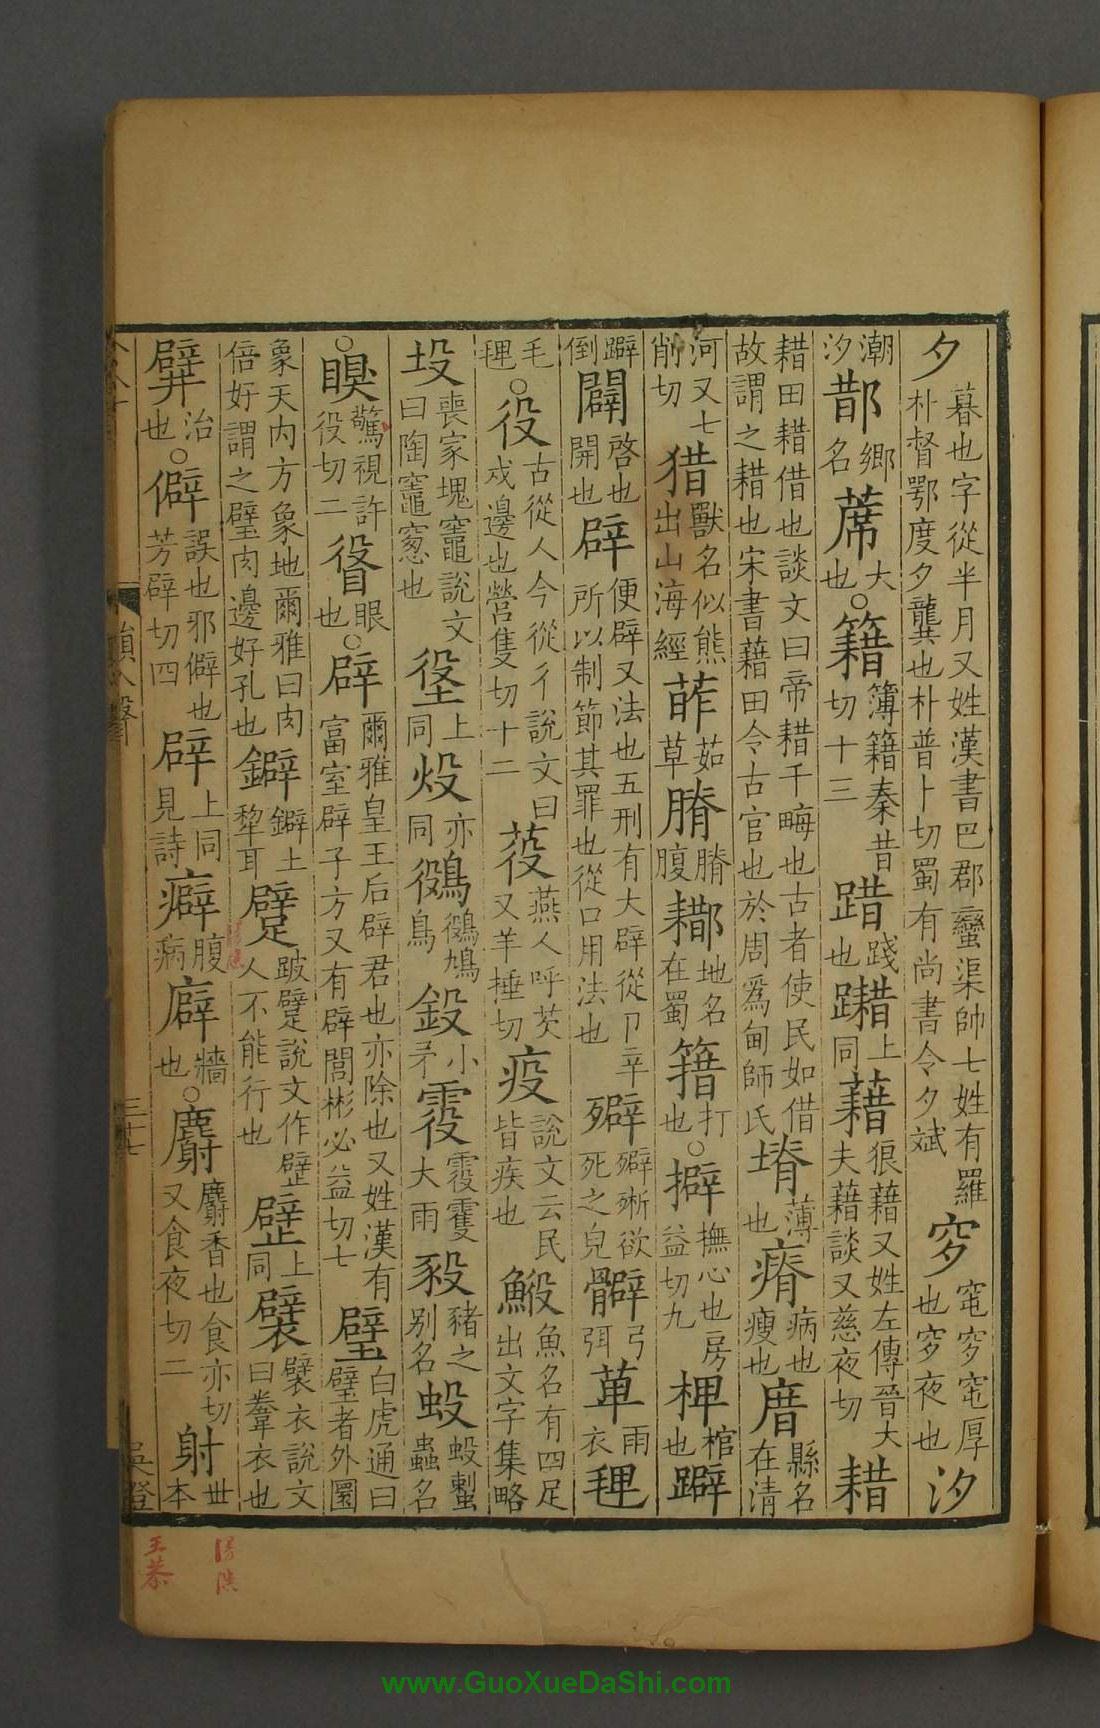 夕暮也字從半月又姓漢書巴郡蠻渠帥七姓有羅朴督鄂度夕龔也朴普卜切蜀有尚書令夕斌穸窀穸窀厚也穸夜也汐
潮汐䣢鄉名蓆大也○籍簿籍秦昔切十三踖踐也躤上同藉狼藉又姓左傳晉大夫藉談又慈夜切耤
耤田耤借也說文曰帝耤千畮也古者使民如借故謂之耤也宋書藉田令古官也於周爲甸師氏塉薄也瘠病也瘦也㾊縣名在清
河又七削切猎獸名似熊出山海經䔘茹草膌膌腹地名在蜀簎打也○擗撫心也房益切九椑棺也躃
躃倒闢啓也開也辟便辟又法也五刑有大辟從卩辛所以制節其罪也從口用法也㱸㱸㱤欲死之皃弓弭萆雨衣㲛
毛㲛○役古從人今從彳說文曰戍邊也營隻切十二䓈燕人呼芡又羊捶切疫說文云民皆疾也鮻魚名有四足出文字集略
坄喪家塊竈說文曰陶竈窻也垼上同炈亦同鳥䥘小矛霚大雨豛豬之別名蚥蟲名
○瞁驚視許役切二眼也○辟爾雅皇王后辟君也亦除也又姓漢有富室辟子方又有辟閭彬必益切七璧白虎通曰璧者外圓
象天內方象地爾雅曰肉倍好謂之璧肉邊好孔也鐴鐴土犂耳躄跛躄說文作壁人不能行也上同襞襞衣說文曰韏衣也
㡀治也○僻誤也邪僻也芳辟切四辟上同見詩癖腹病廦牆也○麝麝香也食亦切又食夜切二射世本
韻入聲
三十七
吳澄
王恭
www.GuoXueDaShi.com